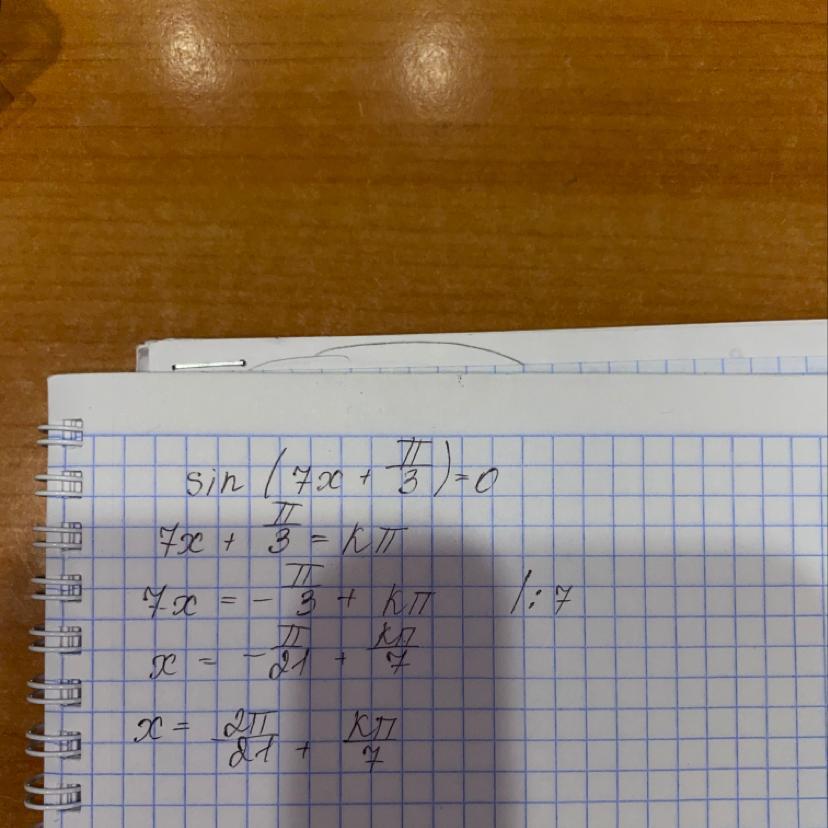 sin (7x + π/3) = 0
7x + π/3 = kπ
7x = - π/3 + kπ /:7
x = - π/21 + kπ/7
x = 2π/21 + kπ/7